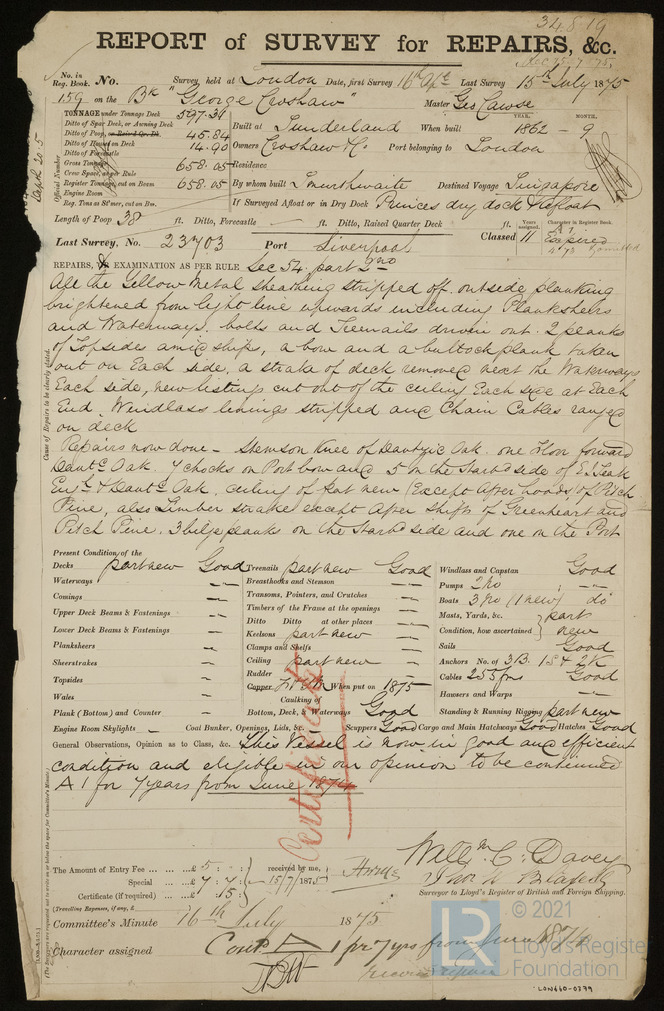 34819
REPORT of SURVEY for REPAIRS, &c.
No. in Reg. Book. No. Survey, held at London Date, first Survey 16th Apl Last Survey 15th July 1875
159 on the Bk "George Croshaw" Master Geo Cawse
TONNAGE under Tonnage Deck 597.31
Ditto of Spar Deck, or Awning Deck
Ditto of Poop, or Raisd Qr. Dk. 45.84
Ditto of Houses on Deck 14.90
Ditto of Forecastle
Gross Tonnage 658.05
Crew Space, as per Rule
Register Tonnage, cut on Beam 658.05
Engine Room
Reg. Tons as SMer, cut on Bm.
Official Number
YEAR. MONTH.
Built at Sunderland When built 1862 - 9
Owners Croshaw & Co Port belonging to London
Residence
By whom built Smurthwaite Destined Voyage Singapore
If Surveyed Afloat or in Dry Dock Princes dry dock & afloat
Length of Poop 38 ft. Ditto, Forecastle — ft. Ditto, Raised Quarter Deck ft.
Years assigned. Character in Register Book.
Last Survey. No. 23703 Port Liverpool Classed 11 A 1 Expired 4.73
REPAIRS, or EXAMINATION AS PER RULE Sec 54 part 2nd
All the Yellow Metal Sheathing stripped off. outside planking
brightened from light line upwards including Planksheers
and Waterways, bolts and Treenails driven out. 2 planks
of Topsides amidships, a bow and a buttock plank taken
out on Each side, a strake of deck removed next the Waterways
Each side, new listing cut out of the ceiling Each side at Each
End. Windlass linings stripped and Chain Cables ranged
on deck
Repairs now done — Stemson Knee of Dantzic Oak. one floor forward
Dantc Oak. 7 chocks on Port bow and 5 on the Starbd side of E.I. Teak
Engh & Dantc Oak, ceiling of flat new (Except after hoods) of Pitch
Pine, also Limber strakes except after shifts of Greenheart and
Pitch Pine. 3 bilge planks on the Starbd side and one on the Port
Cause of Repairs to be clearly stated.
Present Condition of the
Decks part new Good
Waterways —
Comings —
Upper Deck Beams & Fastenings —
Lower Deck Beams & Fastenings —
Planksheers —
Sheerstrakes —
Topsides —
Wales —
Plank (Bottom) and Counter —
Engine Room Skylights — Coal Bunker, Openings, Lids, &c. — Scuppers Good Cargo and Main Hatchways Good Hatches Good
Treenails part new Good
Breasthooks and Stemson —
Transoms, Pointers, and Crutches —
Timbers of the Frame at the openings —
Ditto Ditto at other places —
Keelsons part new —
Clamps and Shelfs —
Ceiling part new —
Rudder —
Copper When put on 1875
Caulking of Bottom, Deck, & Waterways Good
Windlass and Capstan Good
Pumps 2 No —
Boats 3 No (1 new) do
Masts, Yards, &c. Condition, how ascertained } part new
Sails Good
Anchors No. of 3B. 1S & 2K
Cables 255 fms Good
Hawsers and Warps —
Standing & Running Rigging part new
General Observations, Opinion as to Class, &c. This Vessel is now in good and efficient
condition and eligible in our opinion to be continued
A 1 for 7 years from June 1874
Certificate
The Amount of Entry Fee ... £ 5 : - : -
Special ... £ 7 : 7 : -
Certificate (if required) ... £ : 15 :
received by me, 15/7/1875
(Travelling Expenses, if any, £
Willm C. Davey
Surveyor to Lloyd's Register of British and Foreign Shipping.
Committee's Minute 16th July 1875
Character assigned Contd A 1 for 7 yrs from June 1874
© 2021
LR
Lloyd's Register
Foundation
LON660-0379